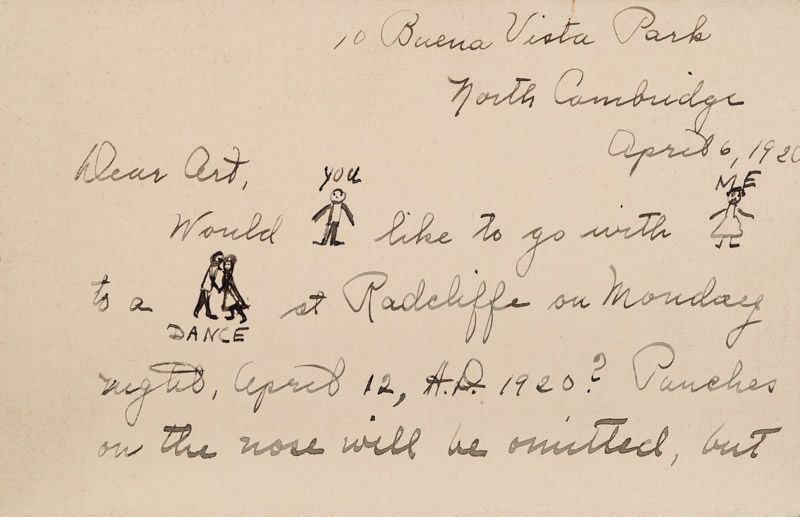 10 Buena Vista Park
North Cambridge
April 6, 1920
Dear Art,
YOU
ME
Would like to go with
to a at Radcliffe on Monday
DANCE
night, April 12, A.D. 1920? Punches
on the nose will be omitted, but